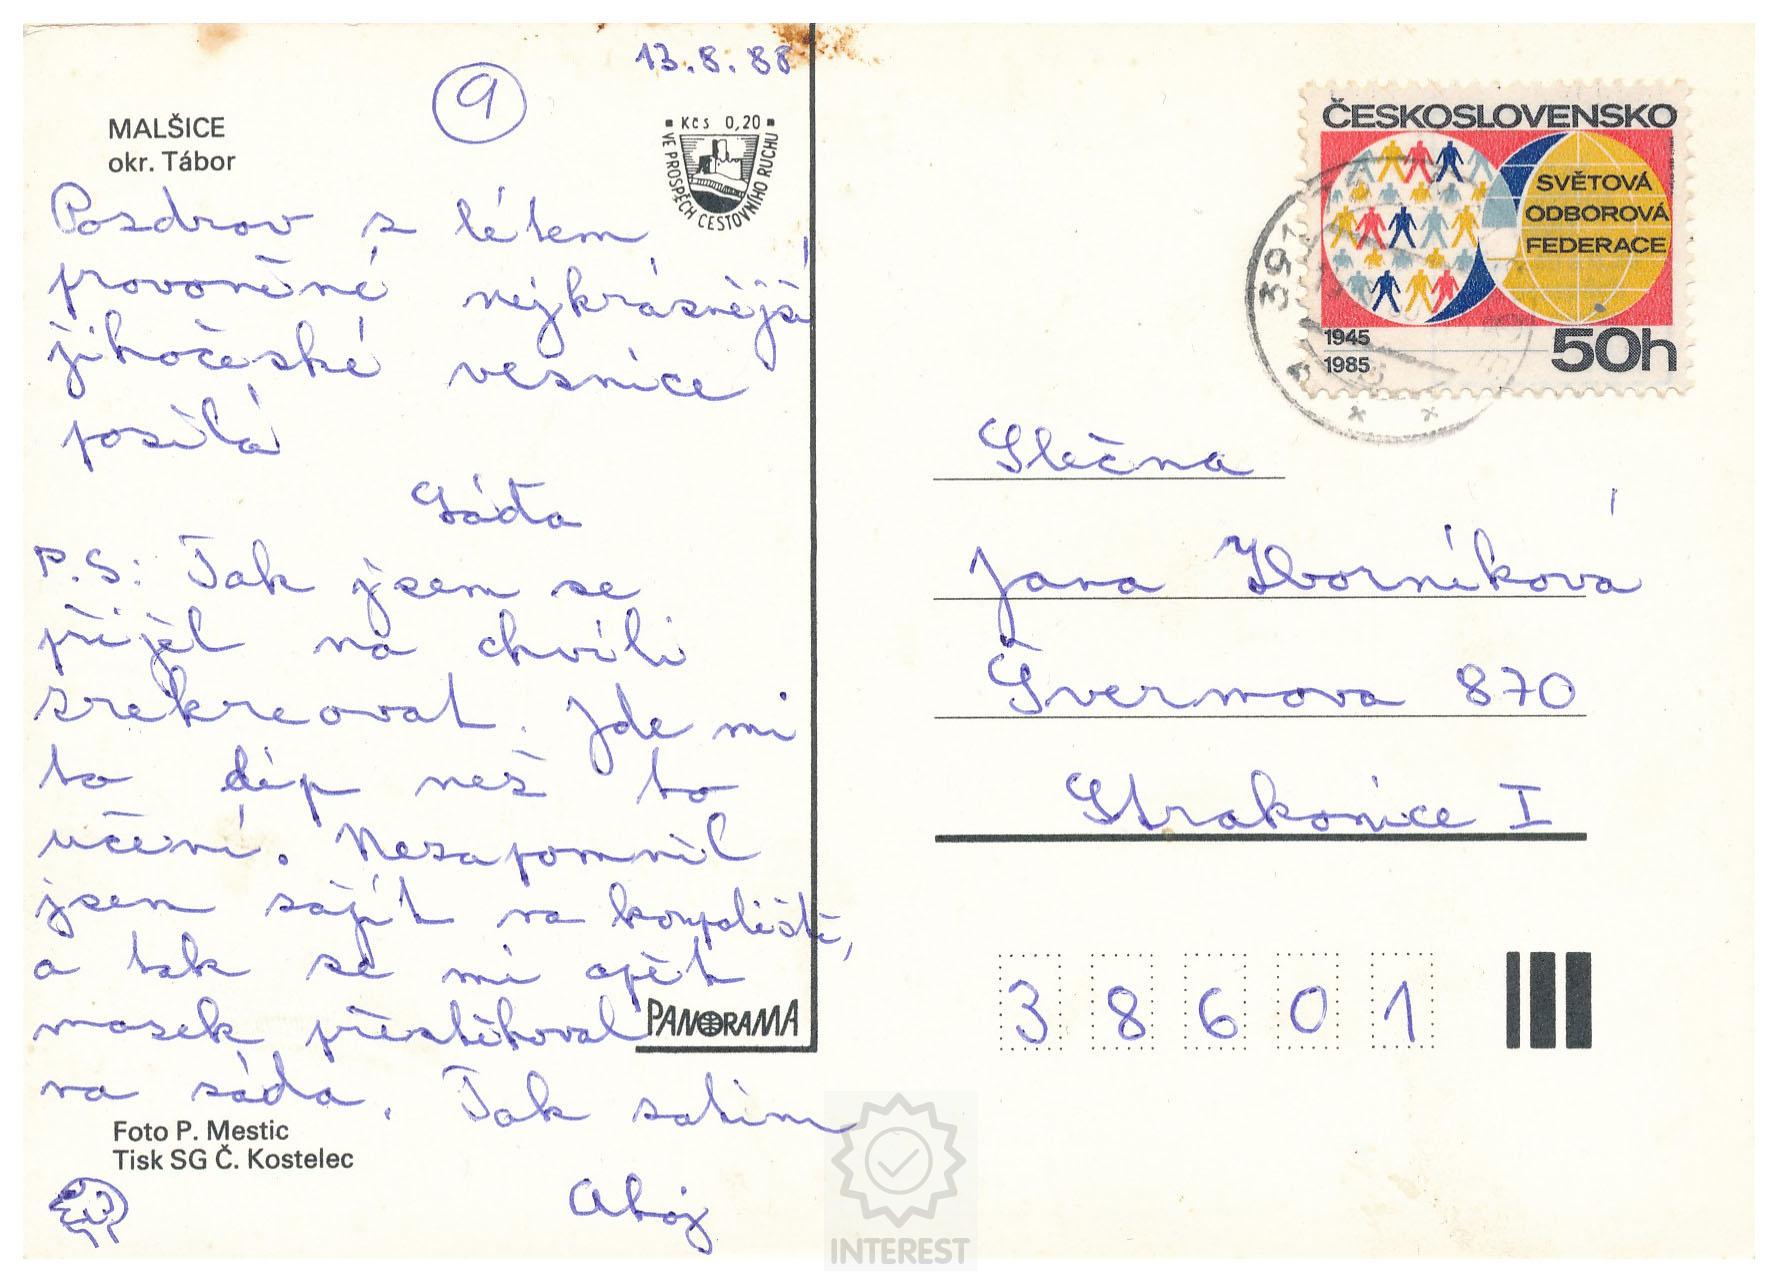 13.8.88
9
MALŠICE
okr. Tábor
Kčs 0,20
VE PROSPĚCH CESTOVNÍHO RUCHU
Pozdrav z létem
provoněné nejkrásnější
jihočeské vesnice
posílá
Láďa
P.S: Tak jsem se
přijel na chvíli
zrekreovat. Jde mi
to líp než to
učení. Nezapomněl
jsem zajít na koupaliště,
a tak se mi opět
mozek přestěhoval
na záda. Tak zatím
Ahoj
PANORAMA
Foto P. Mestic
Tisk SG Č. Kostelec
ČESKOSLOVENSKO
SVĚTOVÁ
ODBOROVÁ
FEDERACE
1945
1985
50h
391
Slečna
Jana Zborníková
Švermova 870
Strakonice I
38601
INTEREST